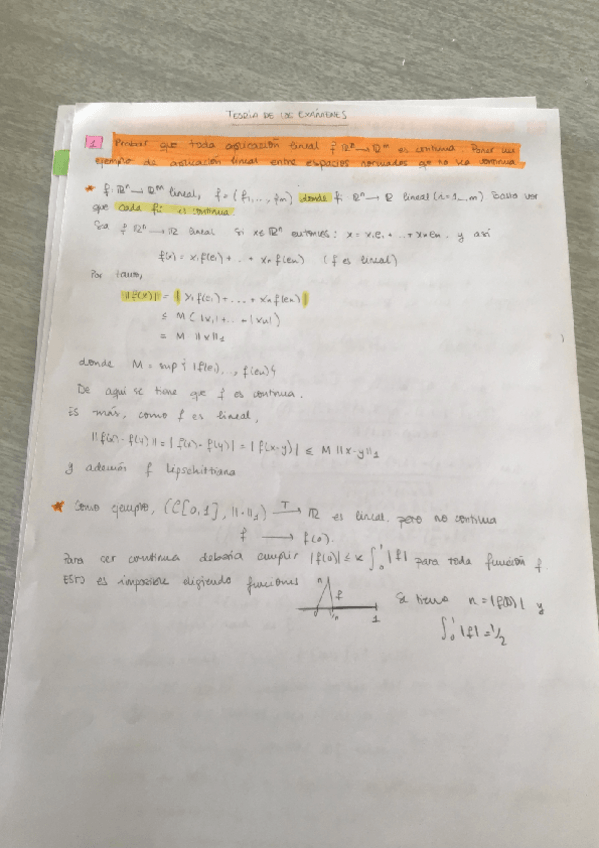 TEORÍA DE LOS EXÁMENES
1 Probar que toda aplicación lineal f: ℝⁿ → ℝᵐ es continua. Poner un
ejemplo de aplicación lineal entre espacios normados que no sea continua
* f: ℝⁿ → ℝᵐ lineal, f = (f₁, ..., fm) donde fi: ℝⁿ → ℝ lineal (i=1...,m) Basta ver
que cada fi es continua.
Sea f: ℝⁿ → ℝ lineal Si x∈ℝⁿ entonces: x = x₁e₁ + .. + xnen. y así
f(x) = x₁f(e₁) + .. + xn f(en) (f es lineal)
Por tanto,
||f(x)|| = | x₁f(e₁) + ... + xn f(en) |
≤ M (|x₁| + .. + |xn|)
= M ||x||₁
donde M = sup { |f(e₁), .., f(en)}
De aquí se tiene que f es continua.
Es más, como f es lineal,
||f(x) - f(y)|| = |f(x) - f(y)| = |f(x-y)| ≤ M ||x-y||₁
y además f Lipschitziana
* Como ejemplo, (C[0,1], ||·||₁) T→ ℝ es lineal, pero no continua
f → f(0).
Para ser continua debería cumplir |f(0)| ≤ k ∫₀¹ |f| para toda función f.
Esto es imposible eligiendo funciones
n f 0 1
Se tiene n = |f(0)| y
∫₀¹ |f| = 1/2